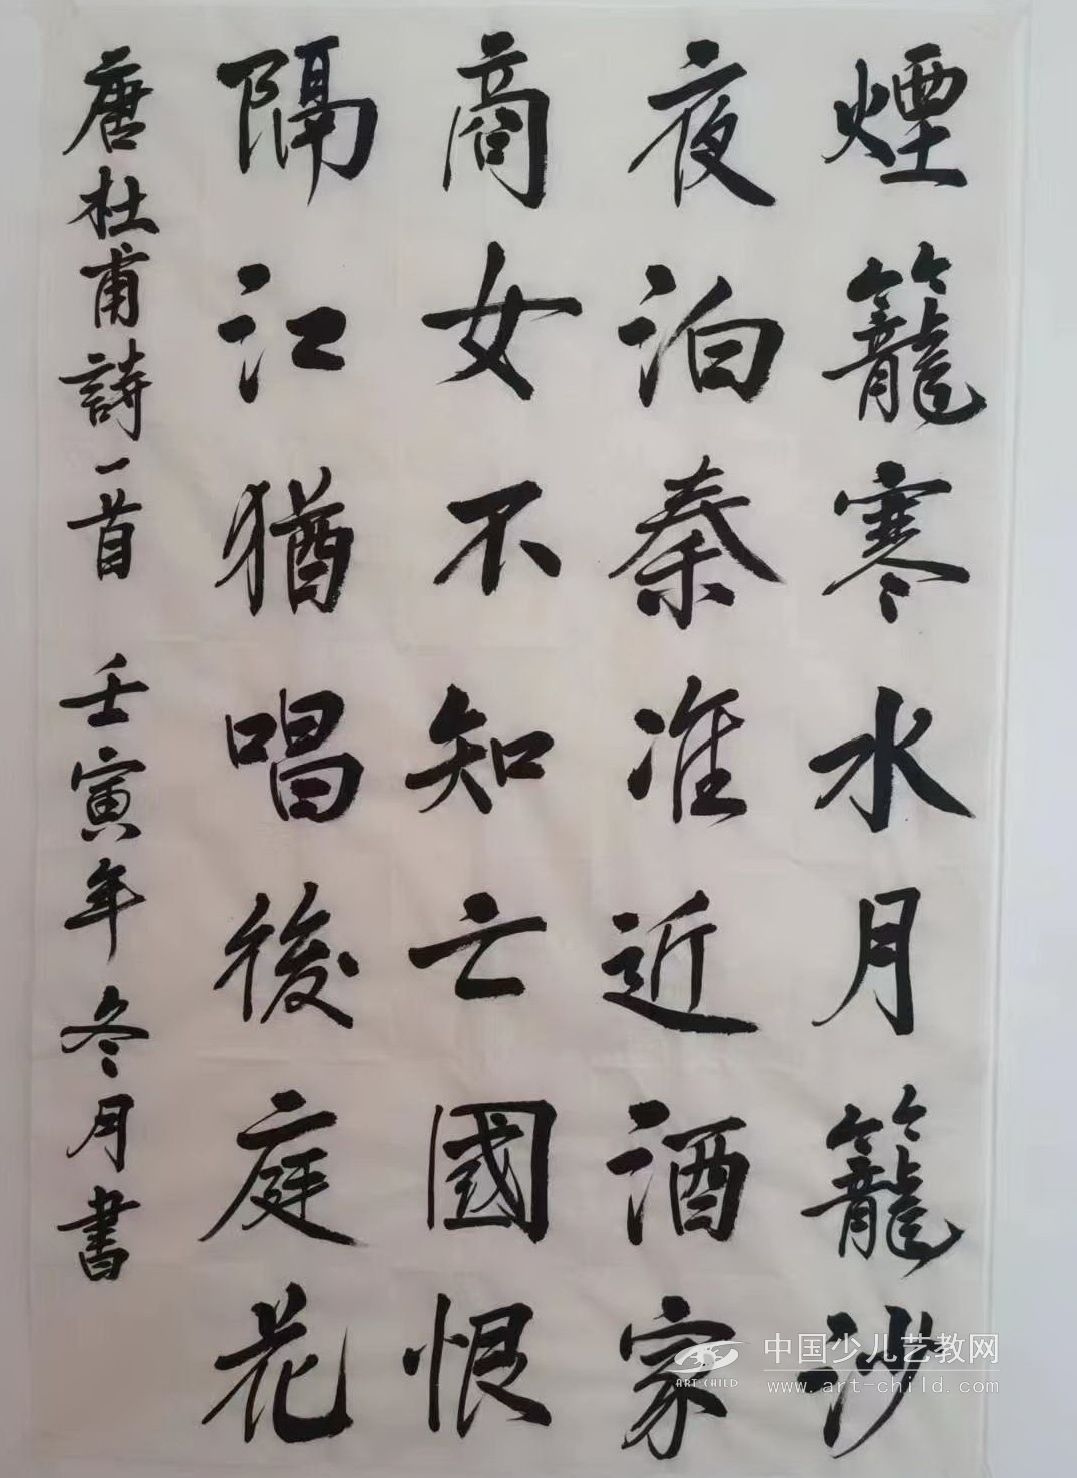 煙籠寒水月籠沙
夜泊秦准近酒家
商女不知亡國恨
隔江猶唱後庭花
唐杜甫詩一首 壬寅年冬月書
中国少儿艺教网
www.art-child.com
ART CHILD